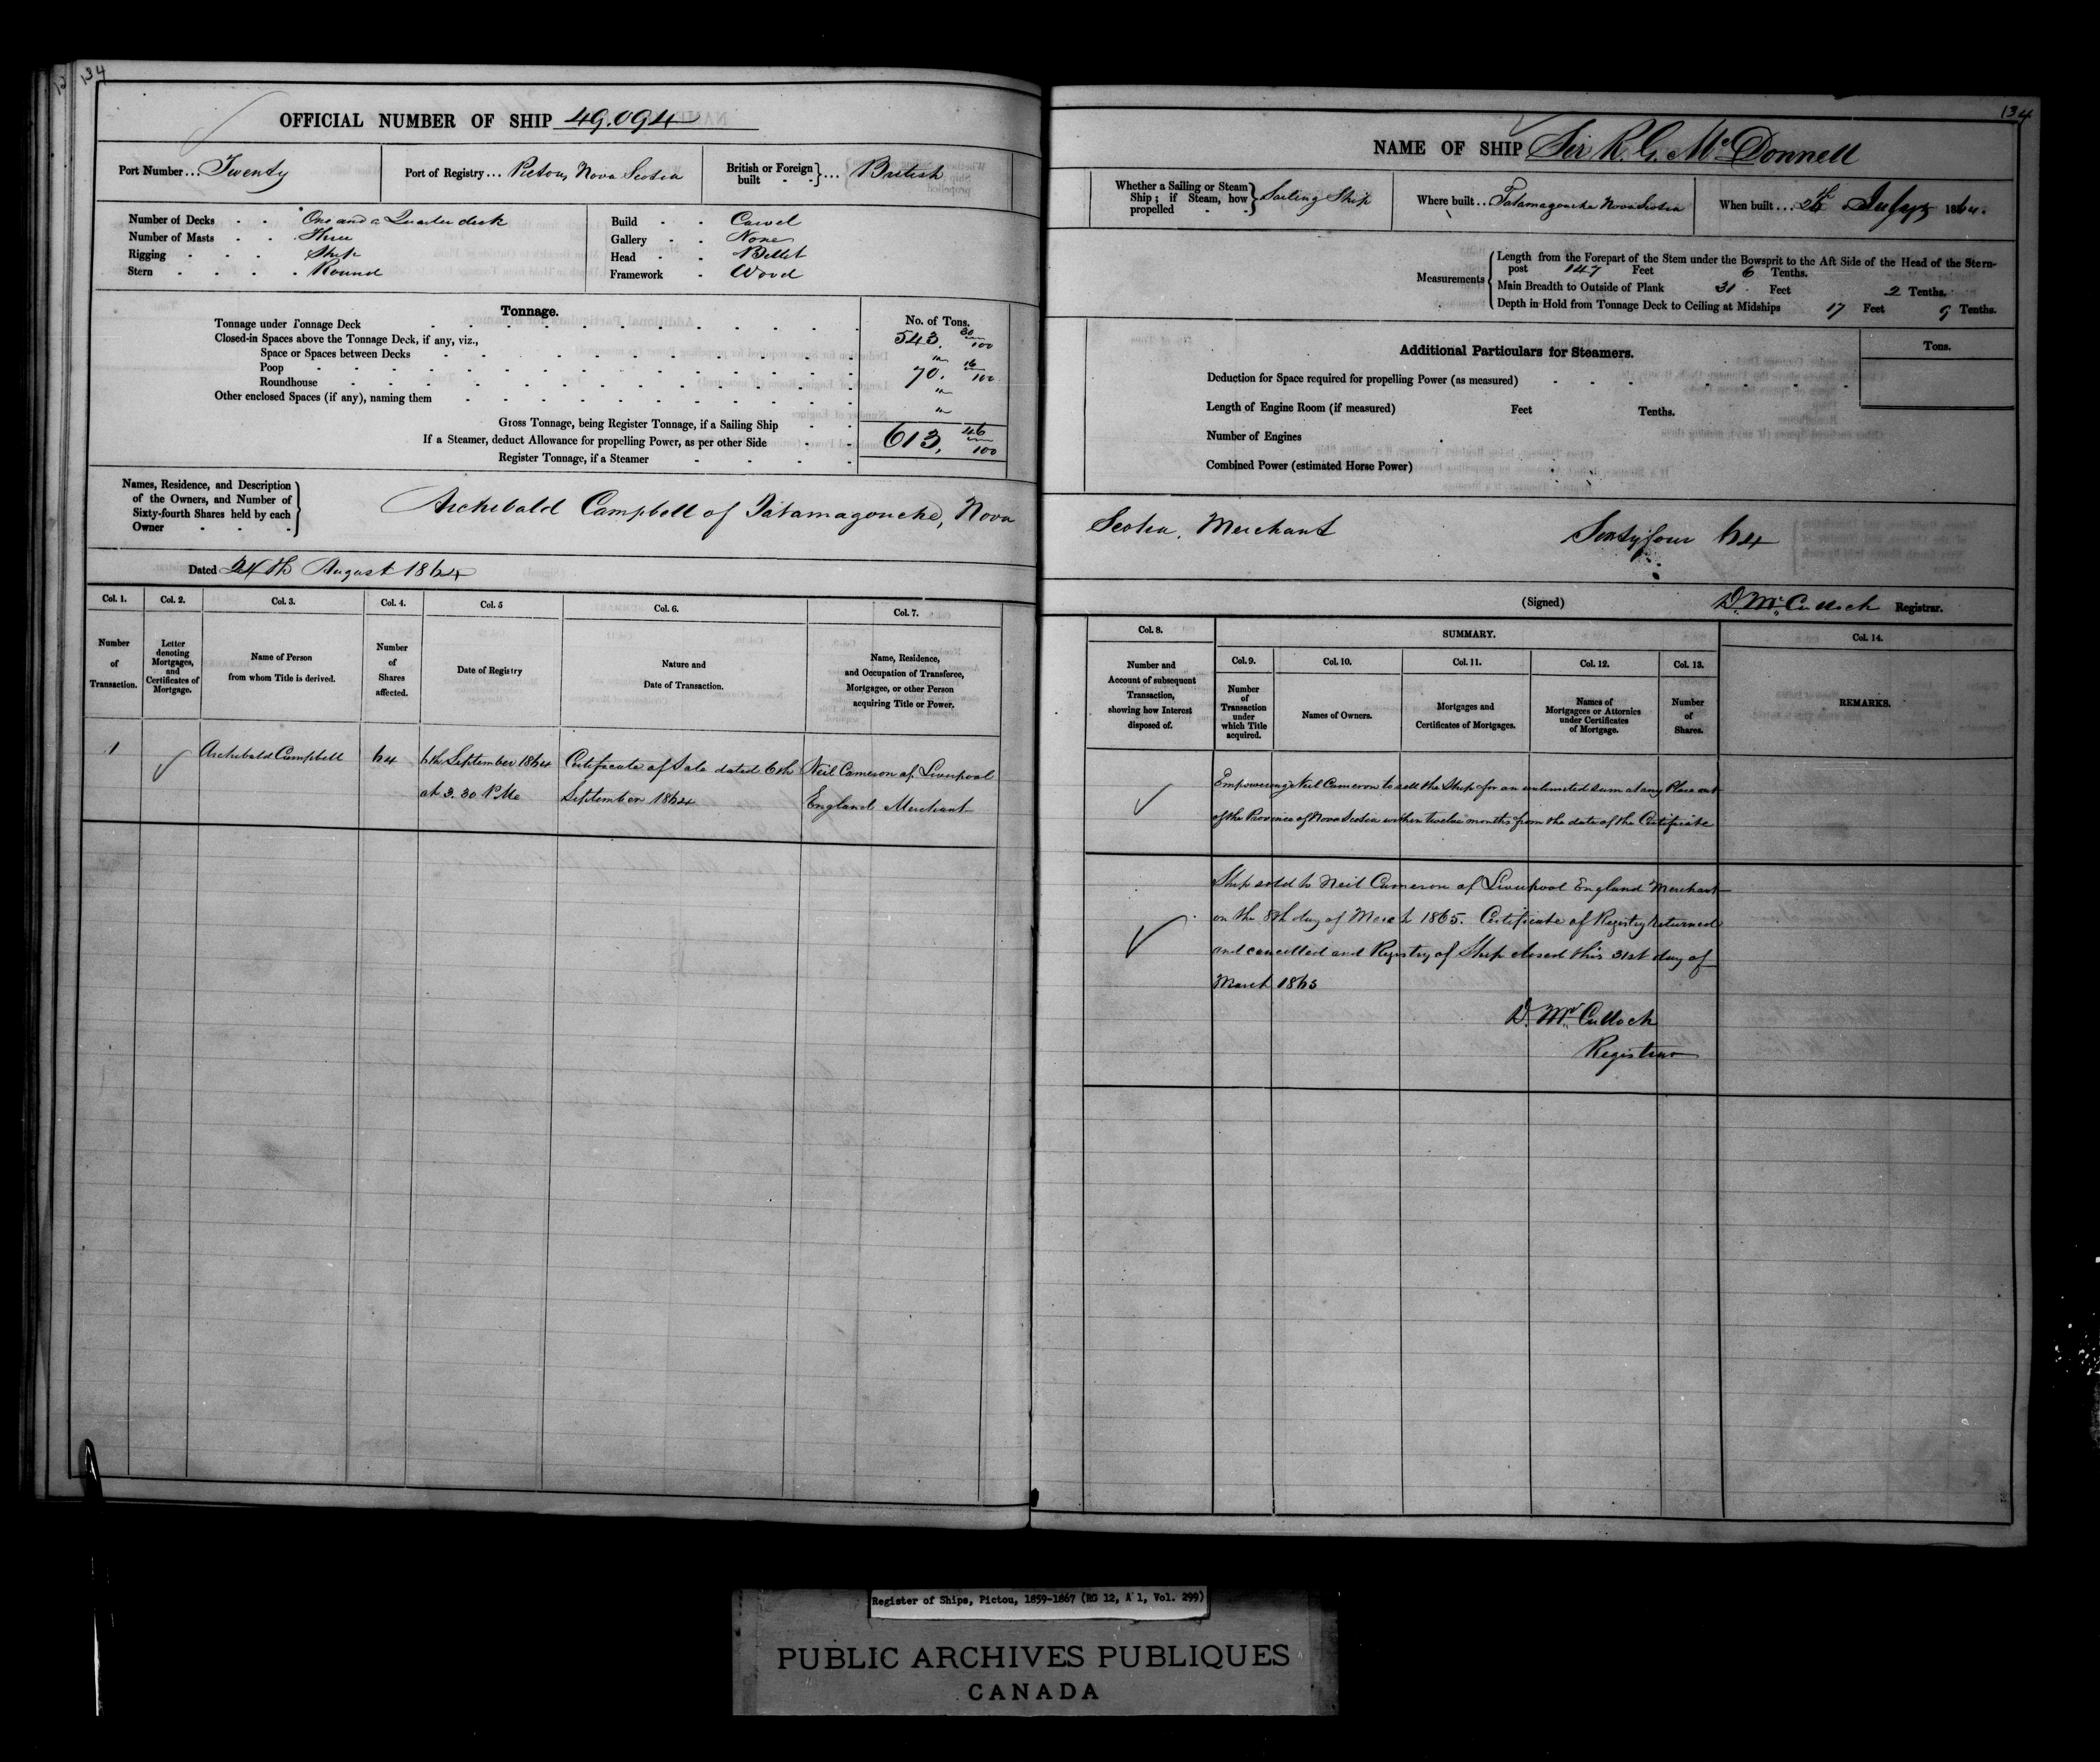 134
OFFICIAL NUMBER OF SHIP 49.094
Port Number... Twenty
Port of Registry... Pictou, Nova Scotia
British or Foreign built - - } ... British
Number of Decks - - One and a Quarter deck
Number of Masts - - Three
Rigging - - - Ship
Stern - - - - Round
Build - - Carvel
Gallery - - None
Head - - Billet
Framework - Wood
Tonnage.
No. of Tons.
Tonnage under Tonnage Deck 543. 30/100
Closed-in Spaces above the Tonnage Deck, if any, viz.,
Space or Spaces between Decks "
Poop 70. 16/100
Roundhouse "
Other enclosed Spaces (if any), naming them "
Gross Tonnage, being Register Tonnage, if a Sailing Ship 613. 46/100
If a Steamer, deduct Allowance for propelling Power, as per other Side
Register Tonnage, if a Steamer
Names, Residence, and Description of the Owners, and Number of Sixty-fourth Shares held by each Owner
Archibald Campbell of Tatamagouche, Nova
Dated 24th August 1864
Col. 1. Col. 2. Col. 3. Col. 4. Col. 5 Col. 6. Col. 7.
Number of Transaction.
Letter denoting Mortgages, and Certificates of Mortgage.
Name of Person from whom Title is derived.
Number of Shares affected.
Date of Registry
Nature and Date of Transaction.
Name, Residence, and Occupation of Transferee, Mortgagee, or other Person acquiring Title or Power.
1 Archibald Campbell 64 6th September 1864 Certificate of Sale dated 6th Neil Cameron of Liverpool
at 3.30 P.M. September 1864 England Merchant
134
NAME OF SHIP Sir R. G. McDonnell
Whether a Sailing or Steam Ship; if Steam, how propelled - - } Sailing Ship
Where built.. Tatamagouche Nova Scotia
When built... July 1864.
Measurements
Length from the Forepart of the Stem under the Bowsprit to the Aft Side of the Head of the Stern-
post 147 Feet 6 Tenths.
Main Breadth to Outside of Plank 31 Feet 2 Tenths.
Depth in Hold from Tonnage Deck to Ceiling at Midships 17 Feet 9 Tenths.
Additional Particulars for Steamers.
Tons.
Deduction for Space required for propelling Power (as measured)
Length of Engine Room (if measured) Feet Tenths.
Number of Engines
Combined Power (estimated Horse Power)
Scotia, Merchant Sixtyfour 64
(Signed) D. McCulloch Registrar.
Col. 8. SUMMARY. Col. 14.
Col. 9. Col. 10. Col. 11. Col. 12. Col. 13.
Number and Account of subsequent Transaction, showing how Interest disposed of.
Number of Transaction under which Title acquired.
Names of Owners.
Mortgages and Certificates of Mortgages.
Names of Mortgagees or Attornies under Certificates of Mortgage.
Number of Shares.
REMARKS.
Empowering Neil Cameron to sell the Ship for an unlimited sum at any Place out
of the Province of Nova Scotia within twelve months from the date of the Certificate
Ship sold to Neil Cameron of Liverpool England Merchant
on the 8th day of March 1865. Certificate of Registry returned
and cancelled and Registry of Ship closed this 31st day of
March 1865
D. McCulloch
Registrar
Register of Ships, Pictou, 1859-1867 (RG 12, A 1, Vol. 299)
PUBLIC ARCHIVES PUBLIQUES
CANADA